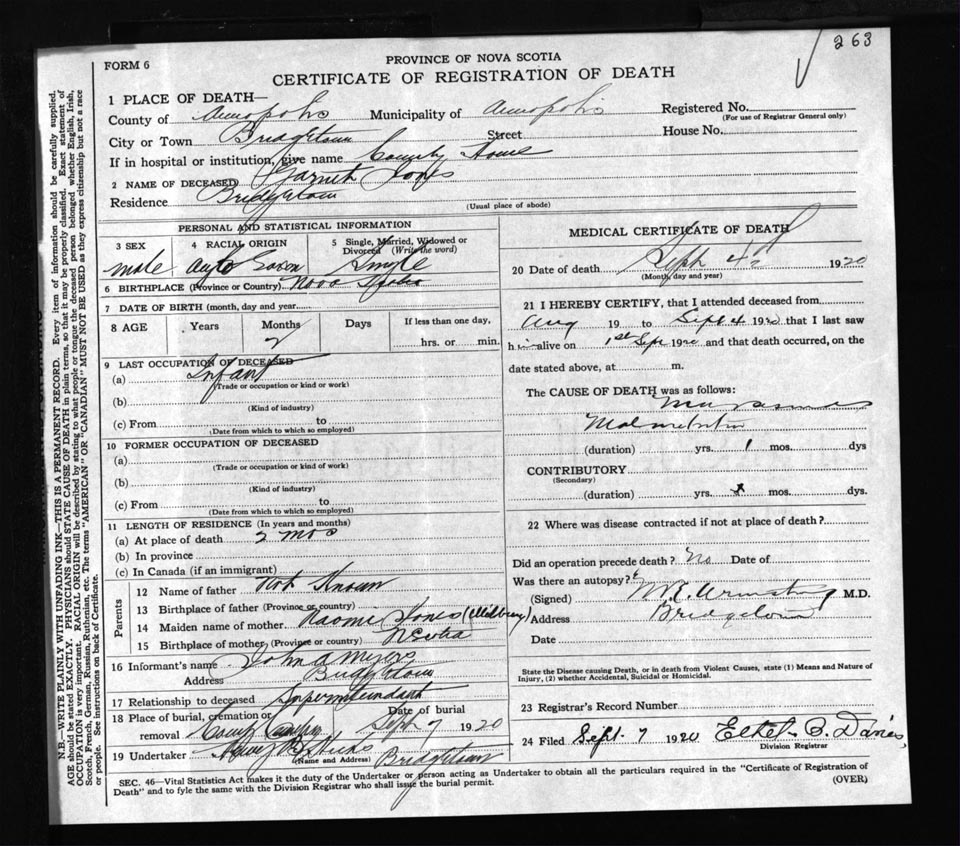 263
FORM 6
PROVINCE OF NOVA SCOTIA
CERTIFICATE OF REGISTRATION OF DEATH
1 PLACE OF DEATH—
County of Annapolis Municipality of Annapolis Registered No.
(For use of Registrar General only)
City or Town Bridgetown Street House No.
If in hospital or institution, give name County Home
2 NAME OF DECEASED Garnet Jones
Residence Bridgetown
(Usual place of abode)
PERSONAL AND STATISTICAL INFORMATION
3 SEX 4 RACIAL ORIGIN 5 Single, Married, Widowed or Divorced (Write the word)
male Anglo Saxon Single
6 BIRTHPLACE (Province or Country) Nova Scotia
7 DATE OF BIRTH (month, day and year)
8 AGE Years Months Days If less than one day,
2 hrs. or min.
9 LAST OCCUPATION OF DECEASED
(a) Infant
(Trade or occupation or kind or work)
(b)
(Kind of industry)
(c) From to
(Date from which to which so employed)
10 FORMER OCCUPATION OF DECEASED
(a)
(Trade or occupation or kind of work)
(b)
(Kind of industry)
(c) From to
(Date from which to which so employed)
11 LENGTH OF RESIDENCE (In years and months)
(a) At place of death 2 mos
(b) In province
(c) In Canada (if an immigrant)
Parents
12 Name of father Not Known
13 Birthplace of father (Province or country)
14 Maiden name of mother Naomi Jones
15 Birthplace of mother (Province or country) N Scotia
16 Informant's name John A Myers
Address Bridgetown
17 Relationship to deceased Superintendant
18 Place of burial, cremation or removal County Date of burial Sept 7 1920
19 Undertaker Hicks Bridgetown
(Name and Address)
MEDICAL CERTIFICATE OF DEATH
20 Date of death Sept 4 1920
(Month, day and year)
21 I HEREBY CERTIFY, that I attended deceased from
Aug 19 to Sept 4 1920 that I last saw
him alive on 1st Sept 1920 and that death occurred, on the
date stated above, at m.
The CAUSE OF DEATH was as follows:
Marasmus
Malnutrition
(duration) yrs. 1 mos. dys
CONTRIBUTORY
(Secondary)
(duration) yrs. mos. dys.
22 Where was disease contracted if not at place of death?
Did an operation precede death? No Date of
Was there an autopsy?
(Signed) Armstrong M.D.
Address Bridgetown
Date
State the Disease causing Death, or in death from Violent Causes, state (1) Means and Nature of
Injury, (2) whether Accidental, Suicidal or Homicidal.
23 Registrar's Record Number
24 Filed Sept. 7 1920 B. Davies
Division Registrar
SEC. 46—Vital Statistics Act makes it the duty of the Undertaker or person acting as Undertaker to obtain all the particulars required in the "Certificate of Registration of
Death" and to fyle the same with the Division Registrar who shall issue the burial permit.
(OVER)
N.B.—WRITE PLAINLY WITH UNFADING INK—THIS IS A PERMANENT RECORD. Every item of information should be carefully supplied.
AGE should be stated EXACTLY. PHYSICIANS should STATE CAUSE OF DEATH in plain terms, so that it may be properly classified. Exact statement of
OCCUPATION is very important. RACIAL ORIGIN will be described by stating to what people or tongue the deceased person belonged whether English, Irish,
Scotch, French, German, Russian, Ruthenian, etc. The terms "AMERICAN" OR "CANADIAN" MUST NOT BE USED as they express citizenship but not a race
or people. See instructions on back of Certificate.